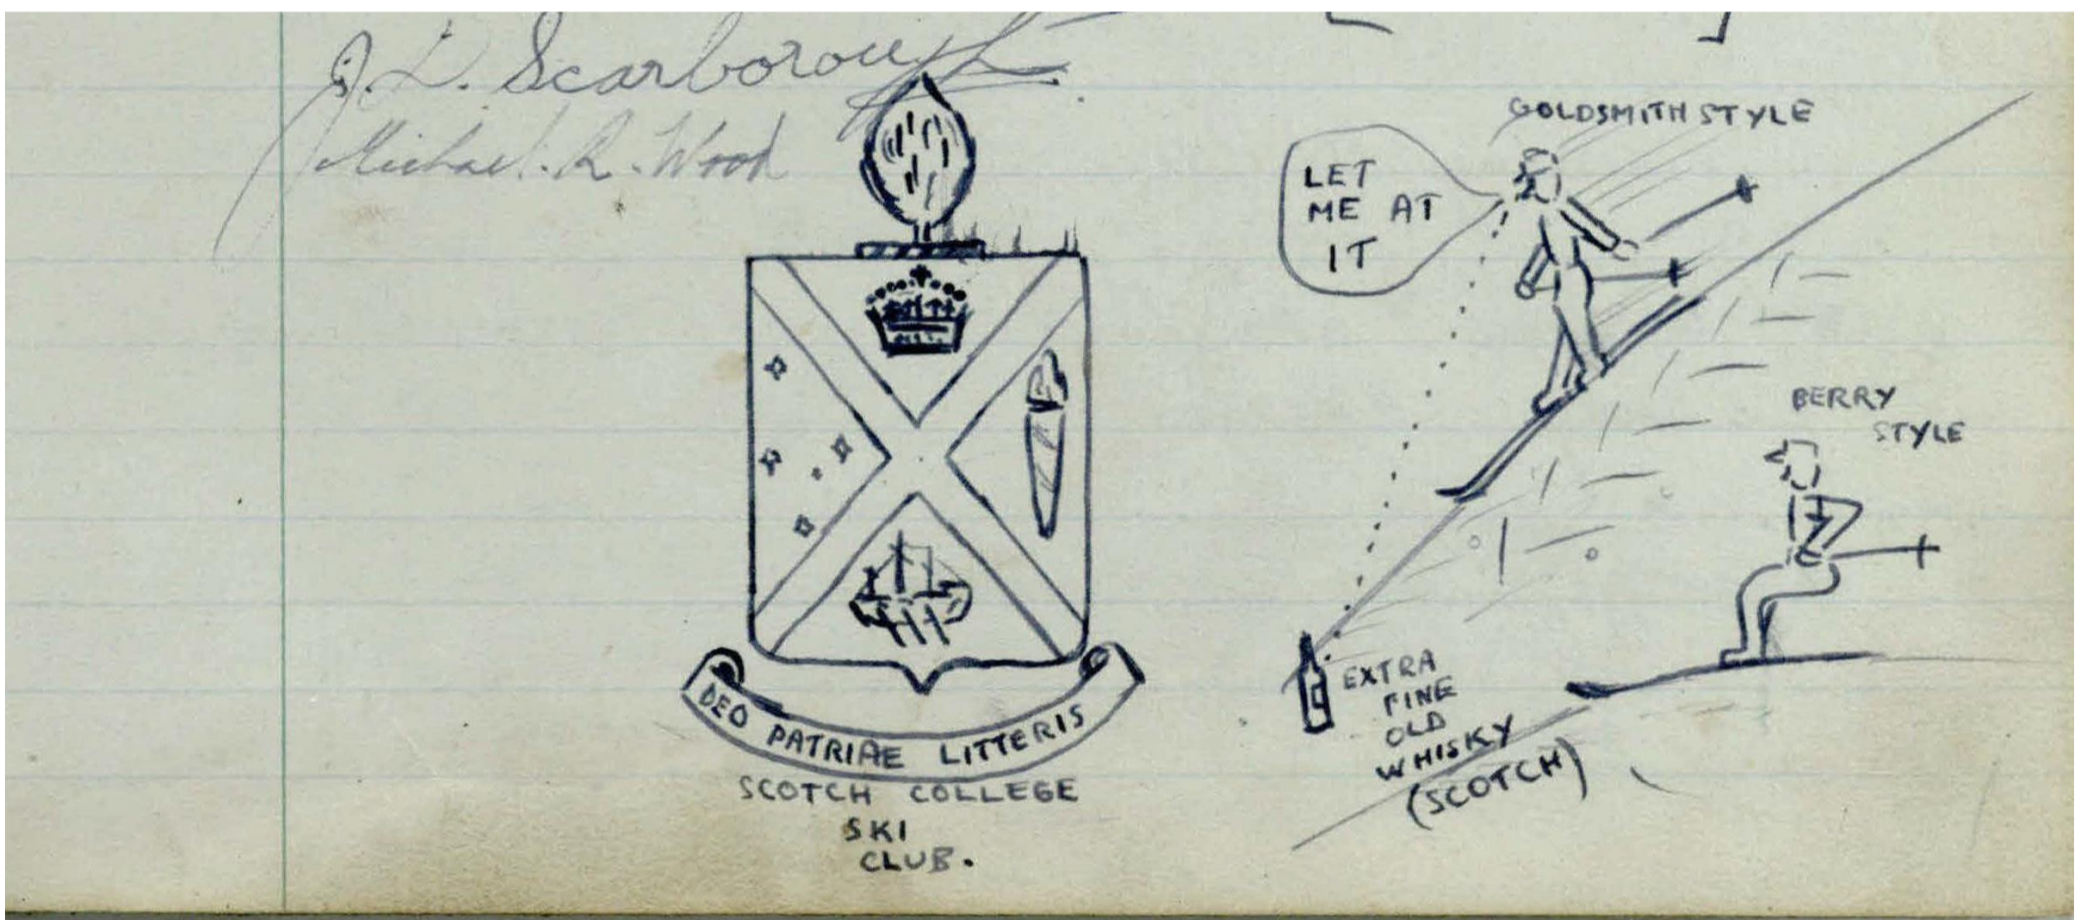 J. L. Scarborough
Michael. R. Wood
DEO PATRIAE LITTERIS
SCOTCH COLLEGE
SKI
CLUB.
GOLDSMITH STYLE
LET
ME AT
IT
BERRY
STYLE
EXTRA
FINE
OLD
WHISKY
(SCOTCH)